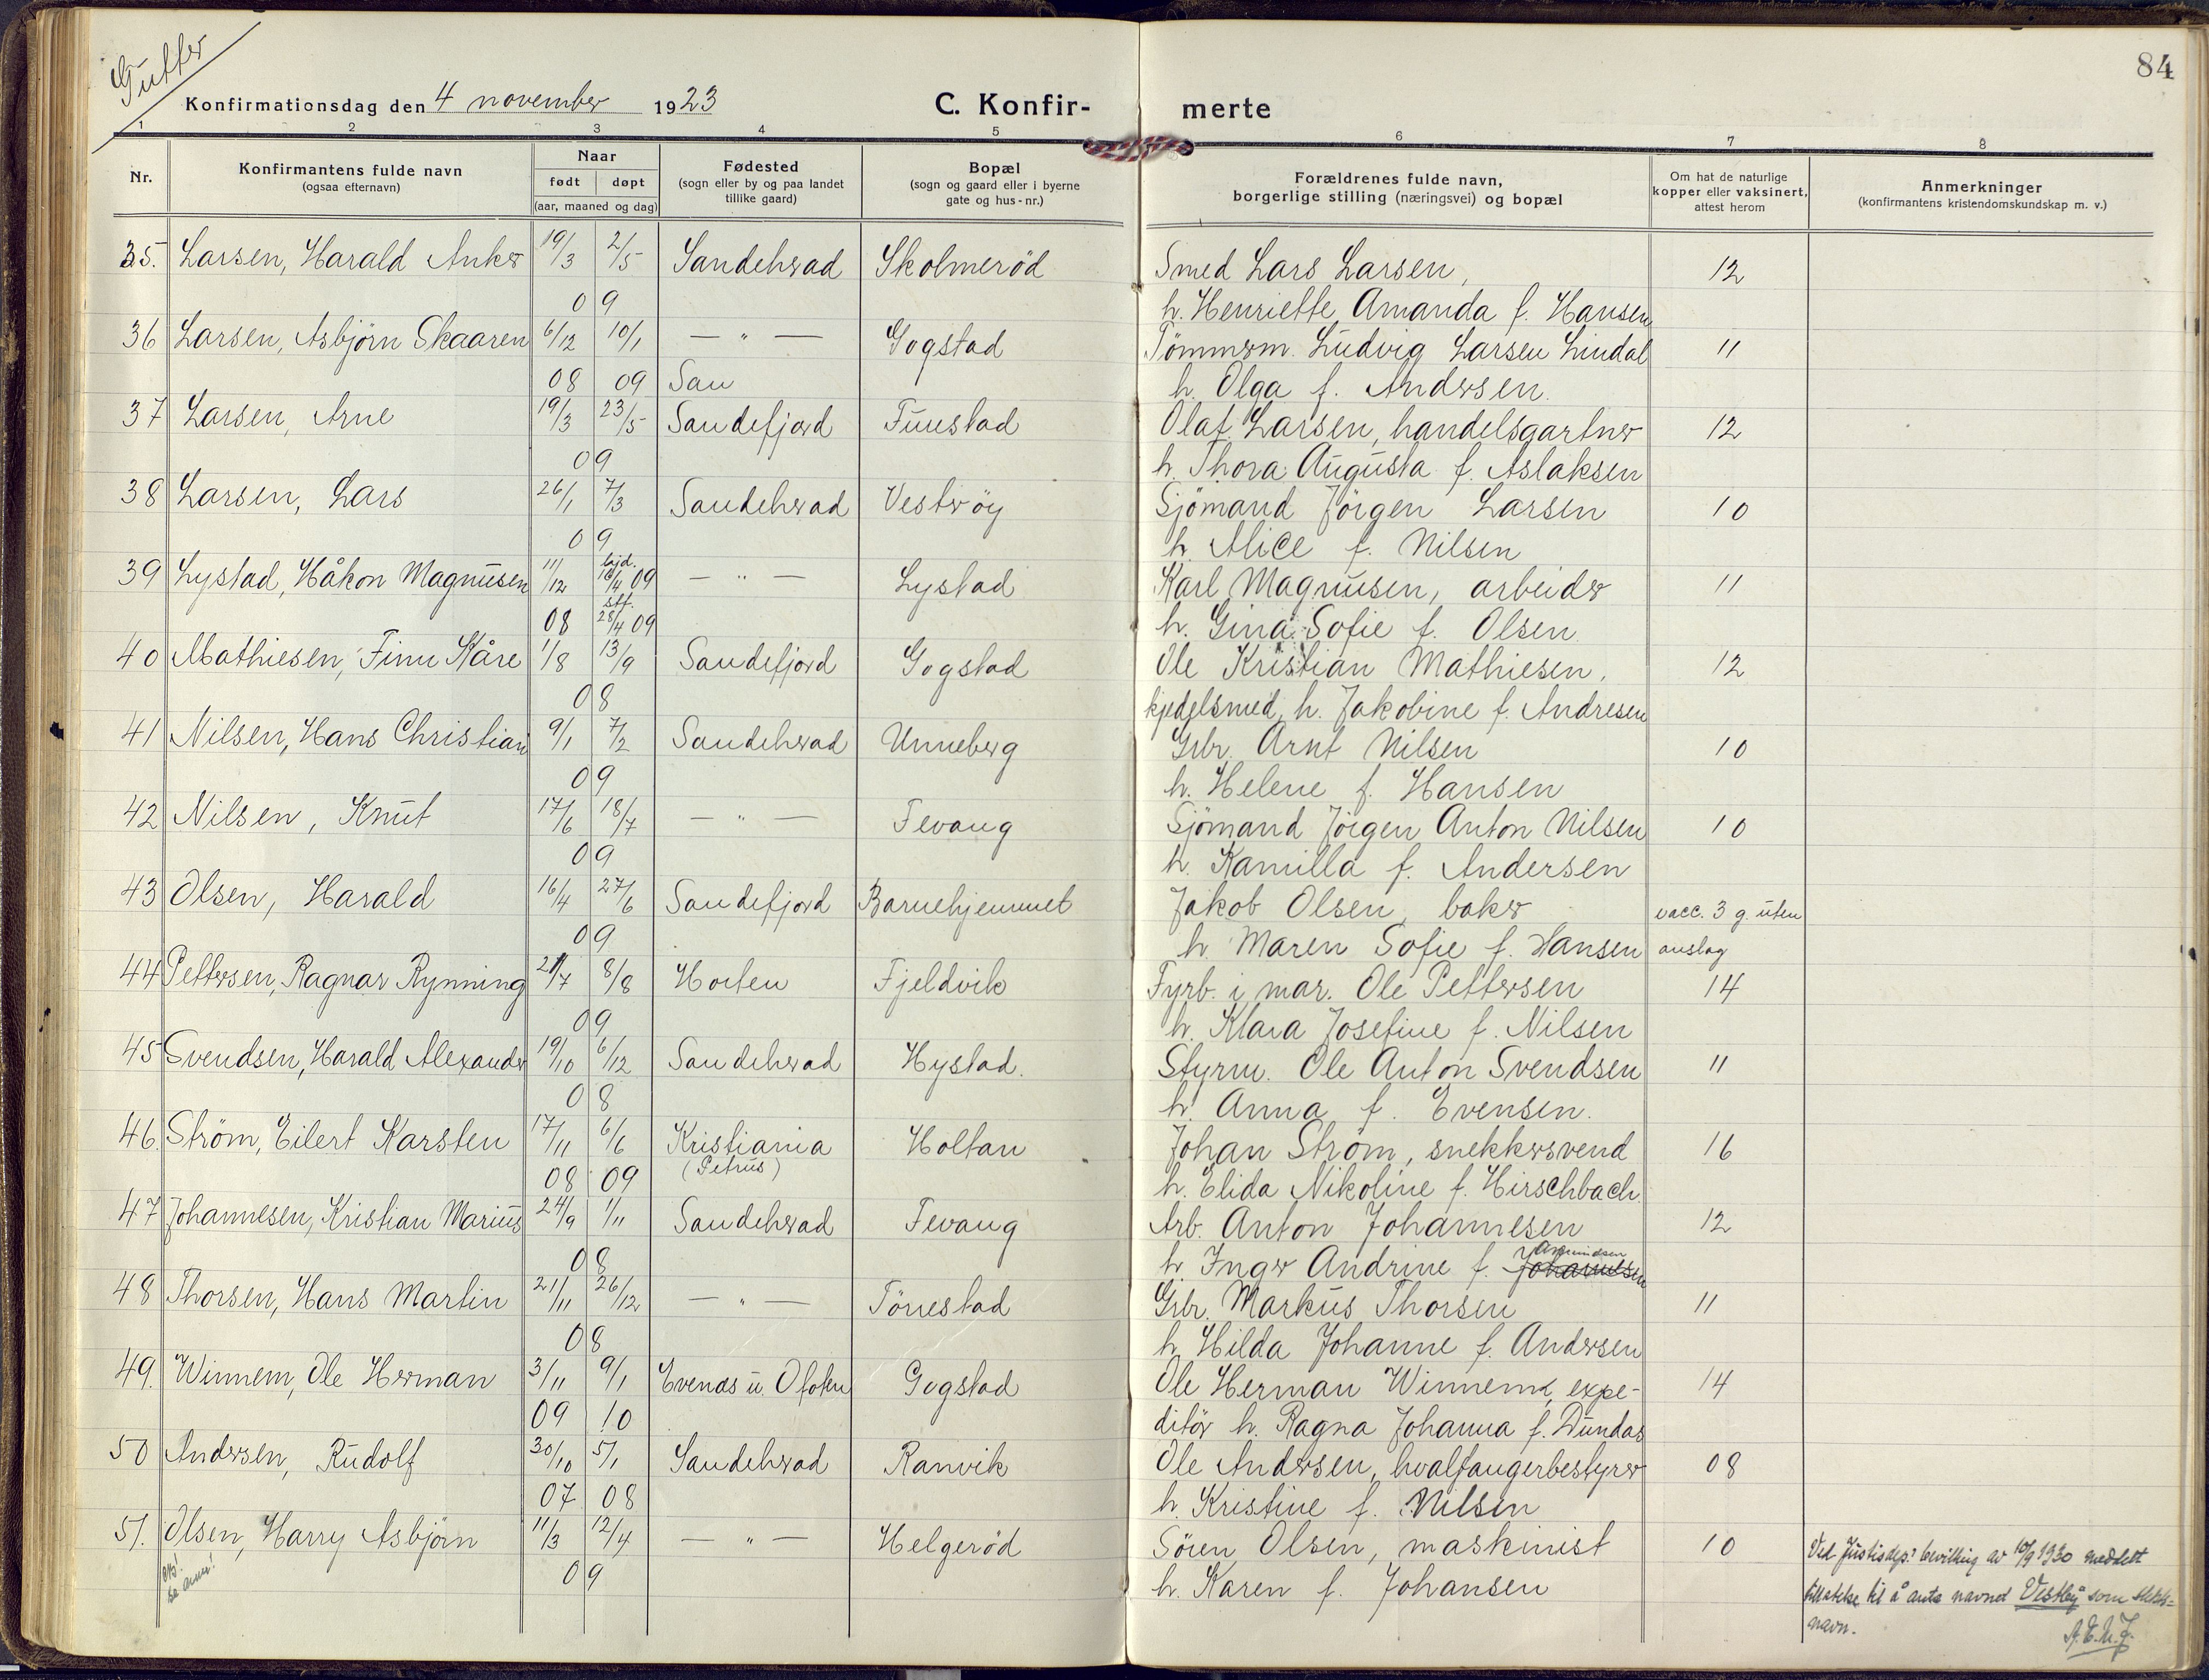 Gutter
84
Konfirmationsdag den 4 november 1923 C. Konfir- merte
1 2 3 4 5 6 7 8
Nr. Konfirmantens fulde navn (ogsaa efternavn) Naar født døpt (aar, maaned og dag) Fødested (sogn eller by og paa landet tillike gaard) Bopæl (sogn og gaard eller i byerne gate og hus-nr.) Forældrenes fulde navn, borgerlige stilling (næringsvei) og bopæl Om hat de naturlige kopper eller vaksinert, attest herom Anmerkninger (konfirmantens kristendomskundskap m. v.)
35. Larsen, Harald Anker 19/3 2/5 Sandeherad Skolmerød Smed Lars Larsen, 12
09 h. Henriette Amanda f. Hansen
36 Larsen, Asbjørn Skaaren 6/12 10/1 — " — Gogstad Tömmerm. Ludvig Larsen Lindal 11
08 09 San h. Olga f. Andersen.
37 Larsen, Arne 19/3 23/5 Sandefjord Furustad Olaf Larsen, handelsgartner 12
09 h. Thora Augusta f. Aslaksen
38 Larsen, Lars 26/1 7/3 Sandeherad Vesterøy Sjömand Jörgen Larsen 10
09 h. Alice f. Nilsen
39 Lystad, Håkon Magnusen 11/12 hjd. 16/4 09 — " — Lystad Karl Magnusen, arbeider 11
08 stf. 28/4 09 h. Gina Sofie f. Olsen
40 Mathiesen, Finn Kåre 1/8 13/9 Sandefjord Gogstad Ole Kristian Mathiesen, 12
08 kjedelsmed, h. Jakobine f. Andresen
41 Nilsen, Hans Christian 9/1 7/2 Sandeherad Unneberg Grbr. Arnt Nilsen 10
09 h. Helene f. Hansen
42 Nilsen, Knut 17/6 18/7 — " — Fevang Sjömand Jörgen Anton Nilsen 10
09 h. Kamilla f. Andersen
43 Olsen, Harald 16/4 27/6 Sandefjord Barnehjemmet Jakob Olsen, baker vacc. 3 g. uten
09 h. Maren Sofie f. Hansen anslag
44 Pettersen, Ragnar Rynning 21/7 8/8 Horten Fjeldvik Fyrb. i mar. Ole Pettersen 14
09 h. Klara Josefine f. Nilsen
45 Svendsen, Harald Alexander 19/10 6/12 Sandeherad Hystad. Styrm. Ole Anton Svendsen 11
08 h. Anna f. Evensen.
46. Ström, Eilert Karsten 17/11 6/6 Kristiania Holtan Johan Ström, snekkersvend 16
08 09 (Petrus) h. Elida Nikoline f. Hirschbach.
47 Johannesen, Kristian Marius 24/9 1/11 Sandeherad Fevang Arb. Anton Johannesen 12
08 h. Inger Andrine f. Johannesen Amundsen
48 Thorsen, Hans Martin 21/11 26/12 — " — Tönnestad Grbr. Markus Thorsen 11
08 h. Hilda Johanne f. Andersen
49. Winnem, Ole Herman 3/11 9/1 Evenæs i Ofoten Gogstad Ole Herman Winnem, expe- 14
09 10 ditör h. Ragna Johanna f. Dundas
50 Andersen, Rudolf 30/10 5/1 Sandeherad Ranvik Ole Andersen, hvalfangerbestyrer 08
07 08 h. Kristine f. Nilsen
51. Olsen, Harry Asbjørn 11/3 12/4 — " — Helgerød Sören Olsen, maskinist 10 Ved Justisdep.s bevilling av 10/9 1930 meddelt
obs! se anm! 09 h. Karen f. Johansen tillatelse til å anta navnet Vestby som slekts-
navn.